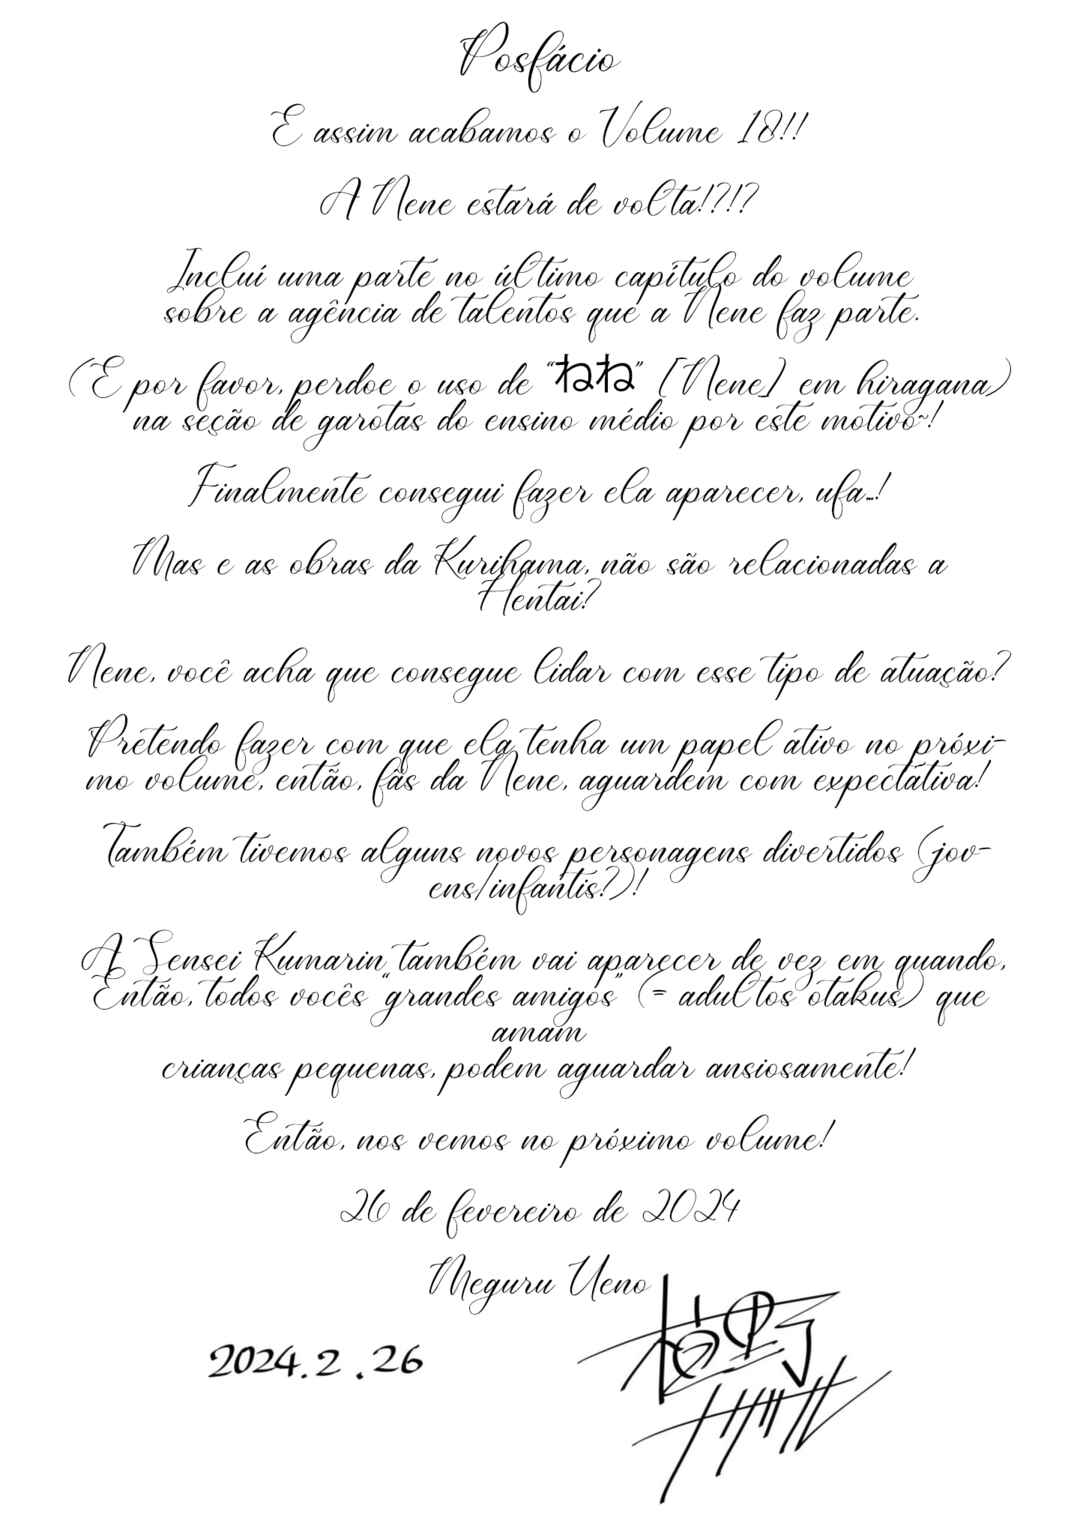 Posfácio
E assim acabamos o Volume 18!!
A Nene estará de volta!?!?
Incluí uma parte no último capítulo do volume
sobre a agência de talentos que a Nene faz parte.
(E por favor, perdoe o uso de "ねね" [Nene] em hiragana)
na seção de garotas do ensino médio por este motivo~!
Finalmente consegui fazer ela aparecer, ufa...!
Mas e as obras da Kurihama, não são relacionadas a
Hentai?
Nene, você acha que consegue lidar com esse tipo de atuação?
Pretendo fazer com que ela tenha um papel ativo no próxi-
mo volume, então, fãs da Nene, aguardem com expectativa!
Também tivemos alguns novos personagens divertidos (jov-
ens/infantis?)!
A Sensei Kumarin também vai aparecer de vez em quando,
Então, todos vocês "grandes amigos" (= adultos otakus) que
amam
crianças pequenas, podem aguardar ansiosamente!
Então, nos vemos no próximo volume!
26 de fevereiro de 2024
Meguru Ueno
2024.2.26